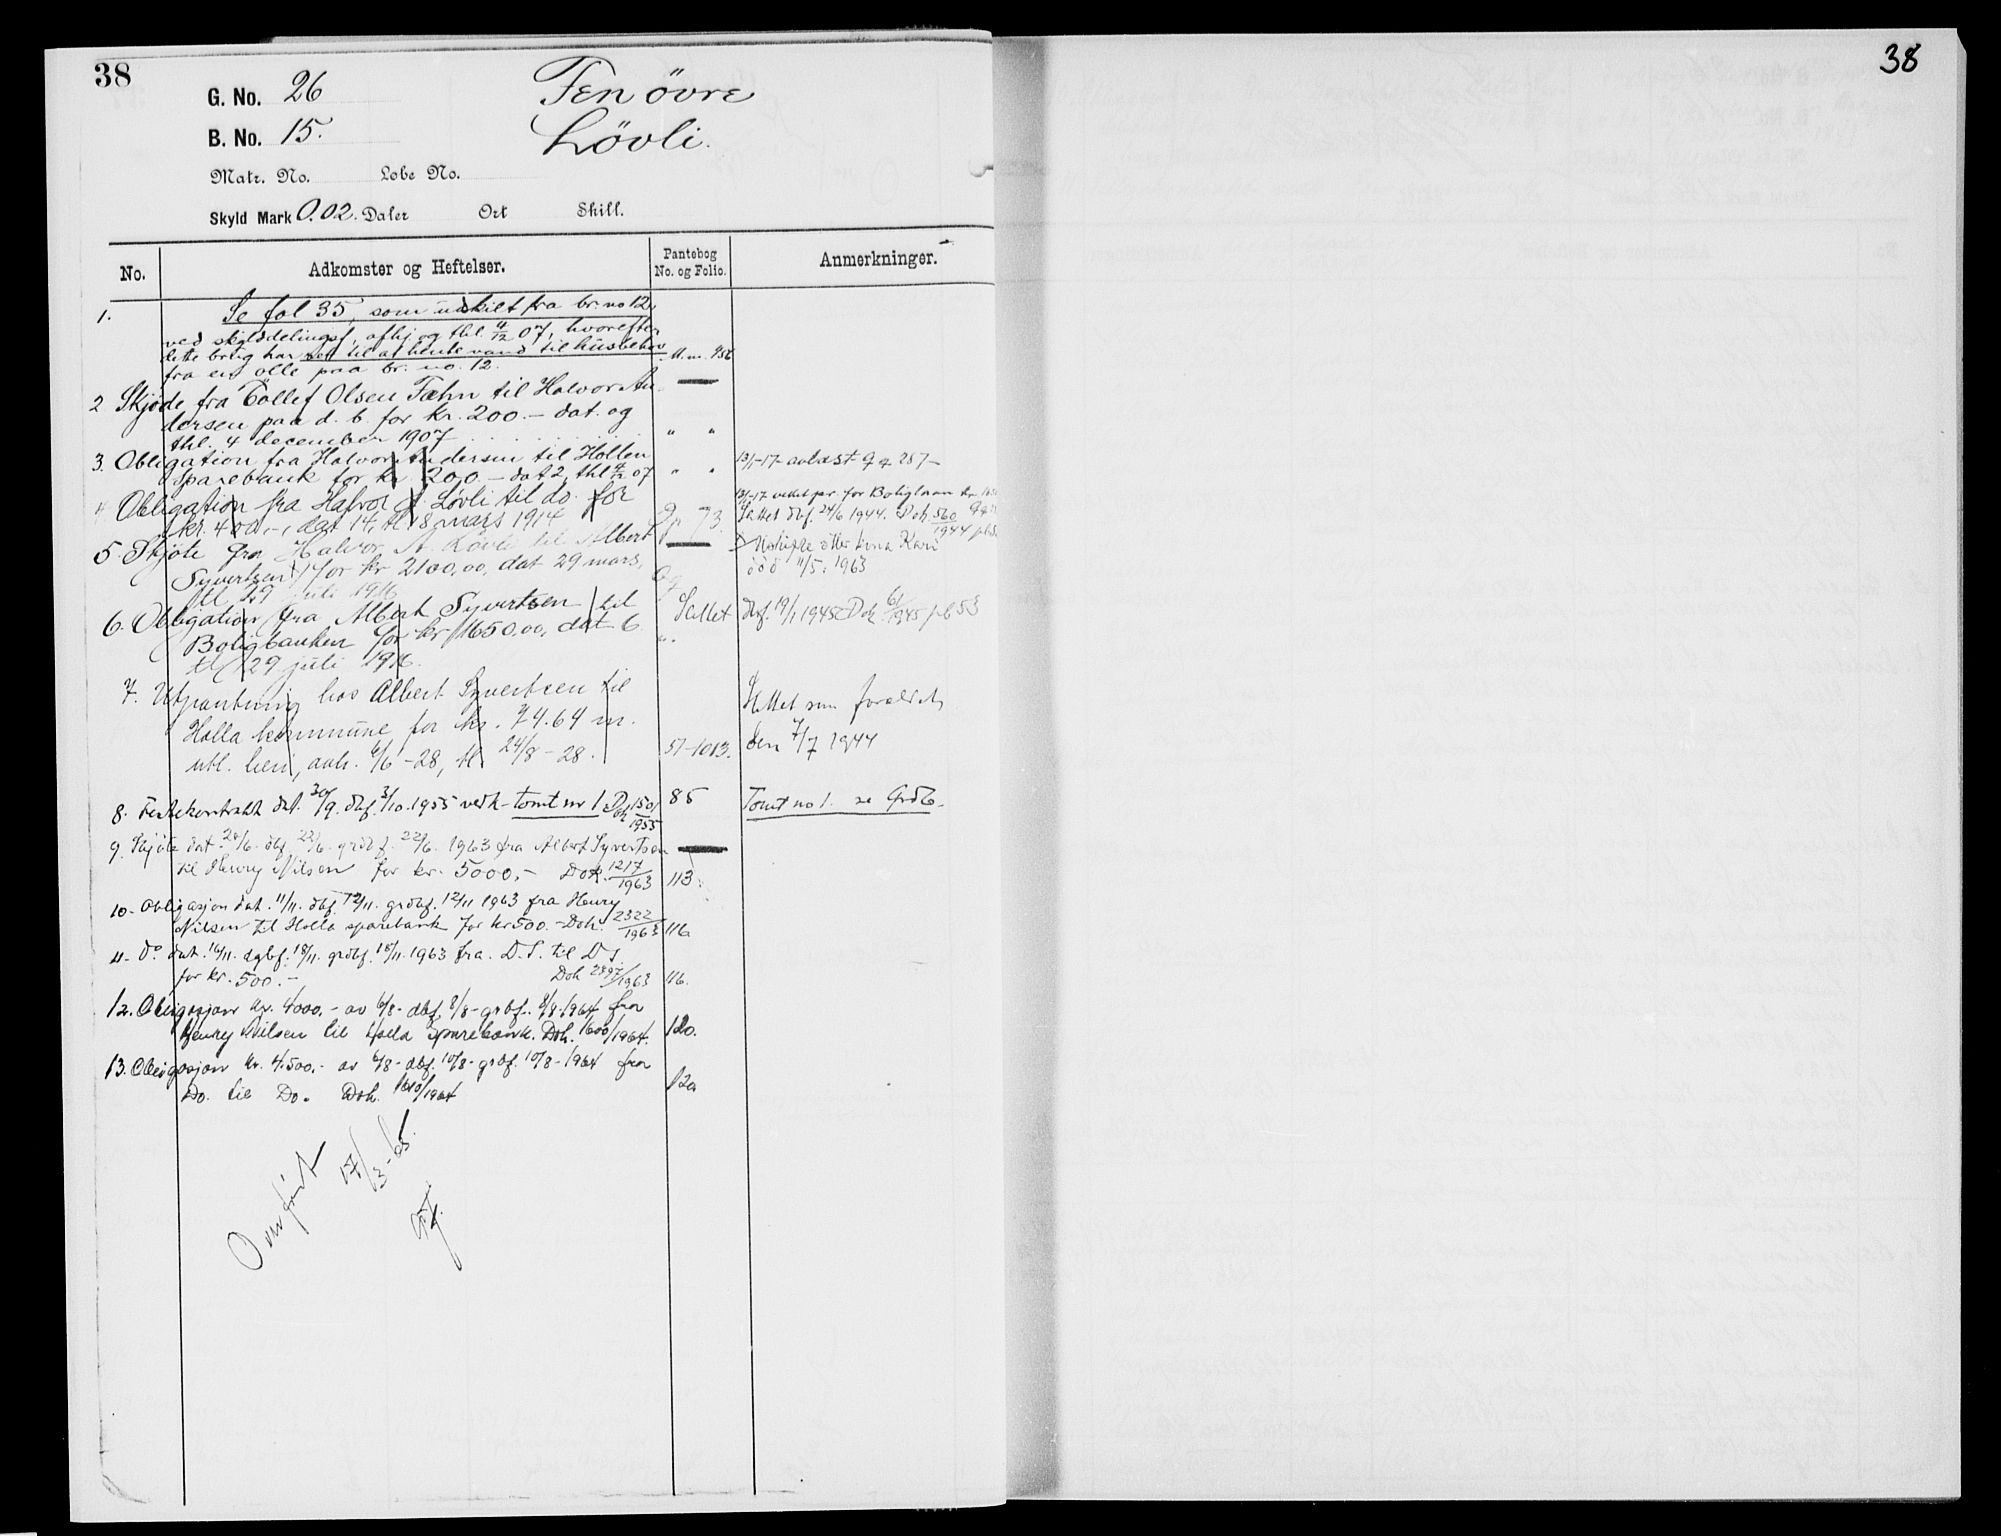 38
38
G. No. 26 Fen övre
B. No. 15. Lövli.
Matr. No. Løbe No.
Skyld Mark 0.02. Daler Ort Skill.
No. Adkomster og Heftelser. Pantebog No. og Folio. Anmerkninger.
1. Se fol 35, som udskilt fra br. no 12,
ved skylddelingsf., afhj. og thl. 4/12 07, hvorefter
dette brug har ret til at hente vand til husbehov M. m. 456
fra en olle paa br. no. 12.
2 Skjøde fra Tollef Olsen Fæhn til Halvor An-
dersen paa d. b. for kr. 200.- dat. og
thl. 4 december 1907 " "
3. Obligation fra Halvor Andersen til Hollen
sparebank for kr 200.- dat 2, thl 4/12 07 " " 13/1-17 avlæst Qq 287-
4 Obligation fra Halvor A. Løvli til do. for
kr. 400.-, dat 14, tl. 18 mars 1914 Pp 73. Slettet dbf. 24/6 1944. Dok 560/1944
5 Skjøte fra Halvor A. Løvli til Albert
Syvertsen for kr 2100,00, dat 29 mars, öde 11/5. 1963
tl 29 juli 1916 Qq
6. Obligation fra Albert Syvertsen til Slettet dbf. 19/1 1945 Dok 61/1945 pb 53
Boligbanken for kr 1650,00, dat 6. " "
tl 29 juli 1916.
7. Utpantning hos Albert Syvertsen til Slettet som foreldet
Holla kommune for kr. 74.64 m. den 7/7 1944
utl. heri, avh. 6/6-28, tl. 24/8-28. 51-1013.
8. Festekontrakt dat. 30/9. dbf. 3/10. 1955 vedk. tomt nr 1. Dok 1501/1955 85 Tomt no 1. se Grdb.
9. Skjøte dat. 20/6. dbf. 22/6. grdbf. 22/6. 1963 fra Albert Syvertsen
til Henry Nilsen for kr. 5000,- Dok. 1217/1963 113.
10. Obligasjon dat. 11/11. dbf. 12/11. grdbf. 12/11 1963 fra Henry
Nilsen til Holla sparebank for kr 500.- Dok. 2322/1963 116
11. Do dat. 16/11. dgbf. 18/11. grdbf. 18/11. 1963 fra. D.S. til D.s.
for kr. 500.- Dok 2397/1963 116.
12. Obligasjon kr. 4000,- av 6/8- dbf. 8/8- grbf. 8/8-1964 fra
Henry Nilsen til Holla Sparebank. Dok. 1600/1964. 120.
13. Obligasjon kr. 4.500,- av 6/8- dbf. 10/8- grdbf. 10/8-1964 fra
Do. til Do. Dok. 1610/1964 120
Omført 17/3-65.